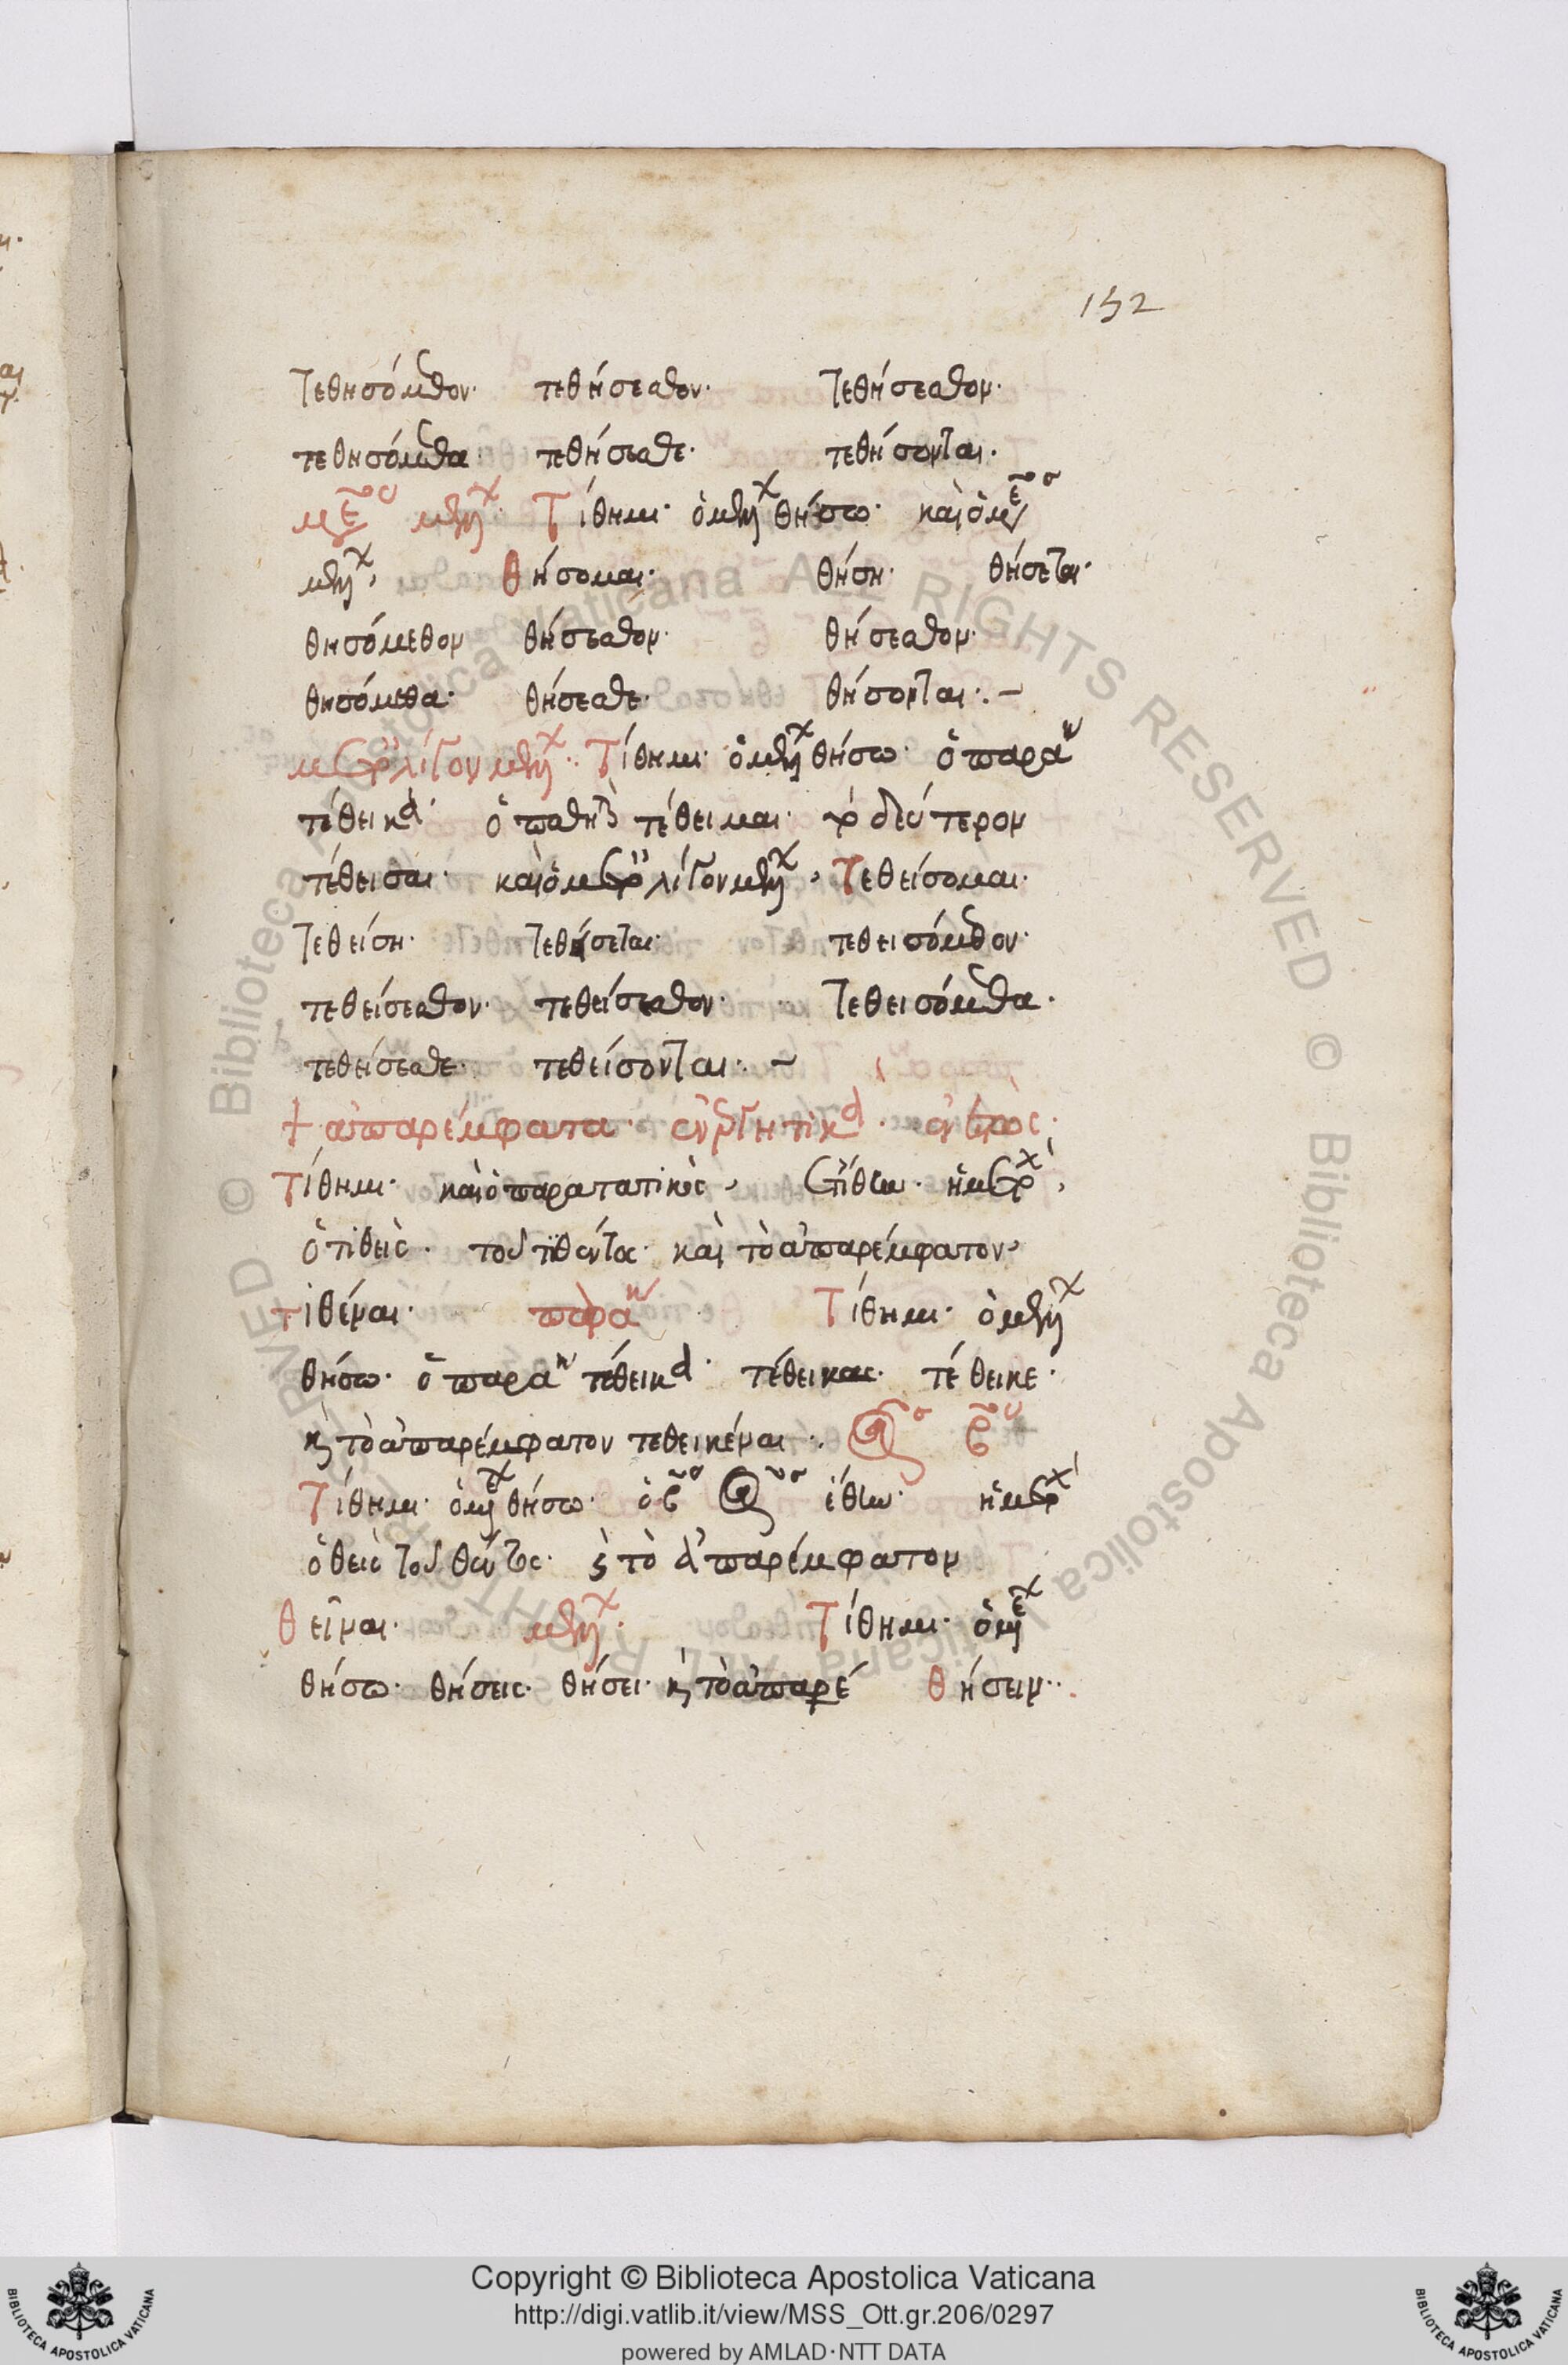 152
τεθησόμεθον· τεθήσεσθον· τεθήσεσθον·
τεθησόμεθα· τεθήσεσθε· τεθήσονται·
Τίθημι· ὁ μέλλ θήσω· καὶ ὁ μέσ
μέλλ, θήσομαι· θήση· θήσεται·
θησόμεθον θήσεσθον· θήσεσθον·
θησόμεθα· θήσεσθε· θήσονται·. –
μετ' ὀλίγον μέλλ·. Τίθημι· ὁ μέλλ θήσω· ὁ παρακ
τέθεικα· ὁ παθητ τέθειμαι· τὸ δεύτερον
τέθεισαι· καὶ ὁ μετ' ὀλίγον μέλλ, τεθείσομαι·
τεθείση· τεθήσεται· τεθεισόμεθον·
τεθείσεσθον· τεθείσεσθον· τεθεισόμεθα·
τεθείσεσθε· τεθείσονται·. –
+ ἀπαρέμφατα· ἐνεργητικα· ἐνεστὼς·
Τίθημι· καὶ ὁ παρατατικὸς, ἐτίθην· ἡ μετοχ,
ὁ τιθεὶς· τοῦ τιθέντος· καὶ τὸ ἀπαρέμφατον,
τιθέναι· παρακ Τίθημι· ὁ μέλλ
θήσω· ὁ παρακ τέθεικα· τέθεικας· τέθεικε·
κ τὸ ἀπαρέμφατον τεθεικέναι·. ἀορ β
Τίθημι· ὁ μέλλ θήσω· ὁ β ἀορ ἔθην· ἡ μετοχ
ὁ θεὶς τοῦ θέντος· κ τὸ ἀπαρέμφατον
θεῖναι· μέλλ· Τίθημι· ὁ μέλλ
θήσω· θήσεις· θήσει· κ τὸ ἀπαρέ θήσειν·.
Copyright © Biblioteca Apostolica Vaticana
http://digi.vatlib.it/view/MSS_Ott.gr.206/0297
powered by AMLAD·NTT DATA